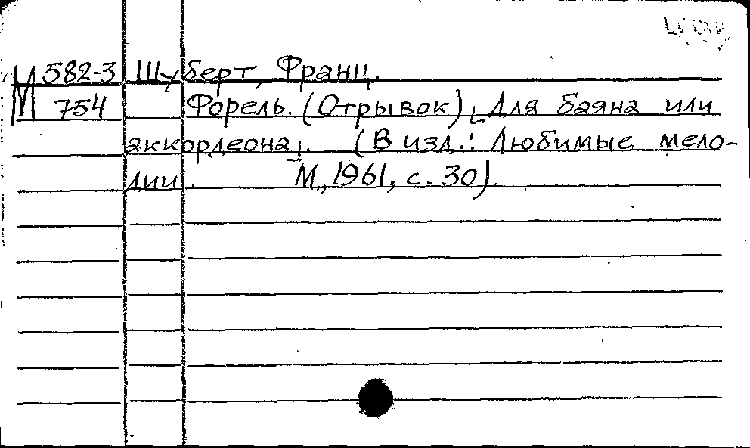 М 582-3 Шуберт, Франц.
М 754 Форель. (Отрывок) [Для баяна или
аккордеона]. (В изд.: Любимые мело-
дии. М., 1961, с. 30).